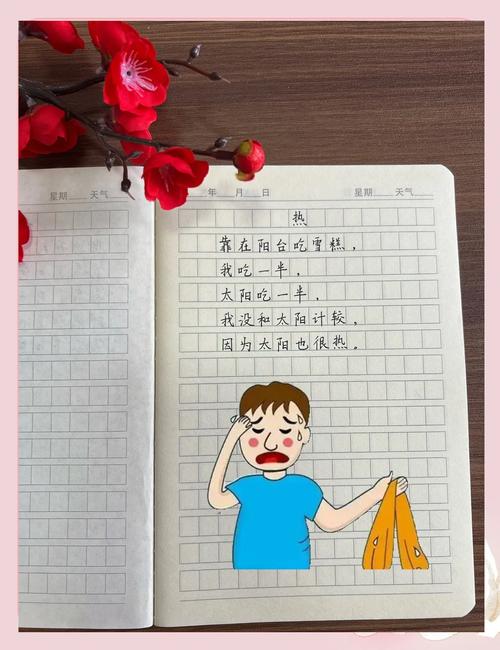 星期 天气
年 月 日 星期 天气
热
靠在阳台吃雪糕，
我吃一半，
太阳吃一半，
我没和太阳计较，
因为太阳也很热。